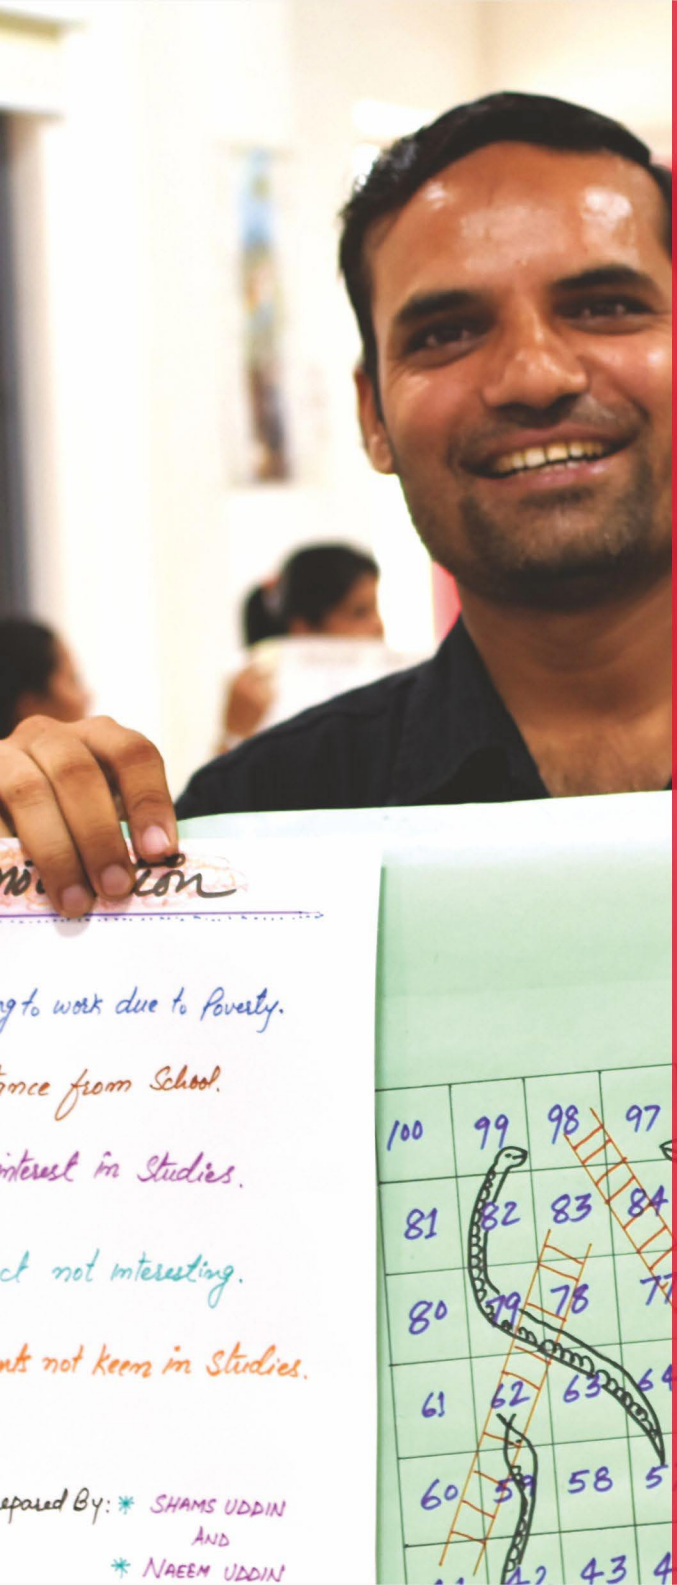 ng to work due to Poverty.
ance from School.
interest in Studies.
ct not interesting.
nts not keen in Studies.
epared By: * SHAMS UDDIN
AND
* NAEEM UDDIN
100 99 98 97
81 82 83 84
80 79 78 77
61 62 63 64
60 59 58 5
42 43 4